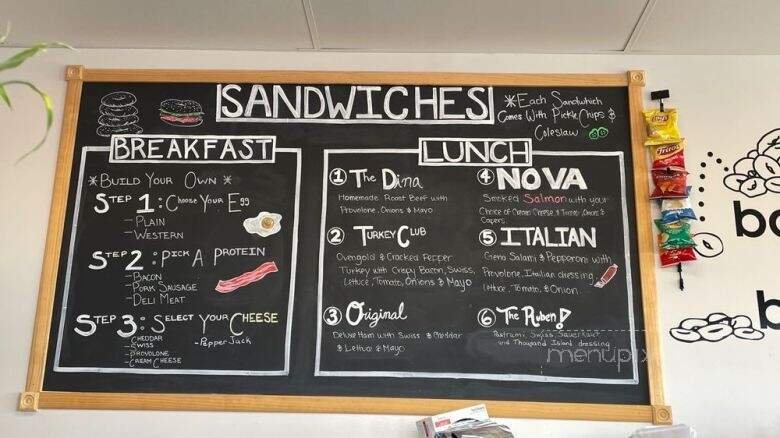 SANDWICHES
*Each Sandwich
Comes With Pickle Chips &
Coleslaw
BREAKFAST
*BUILD YOUR OWN*
STEP 1: Choose Your Egg
- PLAIN
- WESTERN
STEP 2: PICK A PROTEIN
- BACON
- PORK SAUSAGE
- DELI MEAT
STEP 3: SELECT YOUR CHEESE
- CHEDDAR
- SWISS
- PROVOLONE
- CREAM CHEESE
- Pepper Jack
LUNCH
1 The Dina
Homemade Roast Beef with
Provolone, Onions & Mayo
2 TURKEY CLUB
Ovengold & Cracked Pepper
Turkey with Crispy Bacon, Swiss,
Lettuce, Tomato, Onions & Mayo
3 Original
Deluxe Ham with Swiss & Cheddar
& Lettuce & Mayo
4 NOVA
Smoked Salmon with your
Choice of Cream Cheese, & Tomato, Onions &
Capers
5 ITALIAN
Genoa Salami & Pepperoni with
Provolone, Italian dressing,
Lettuce, Tomato, & Onion
6 The Ruben!
Pastrami, Swiss, Sauerkraut
and Thousand Island dressing
menupix
Lay's
Fritos
ba
b